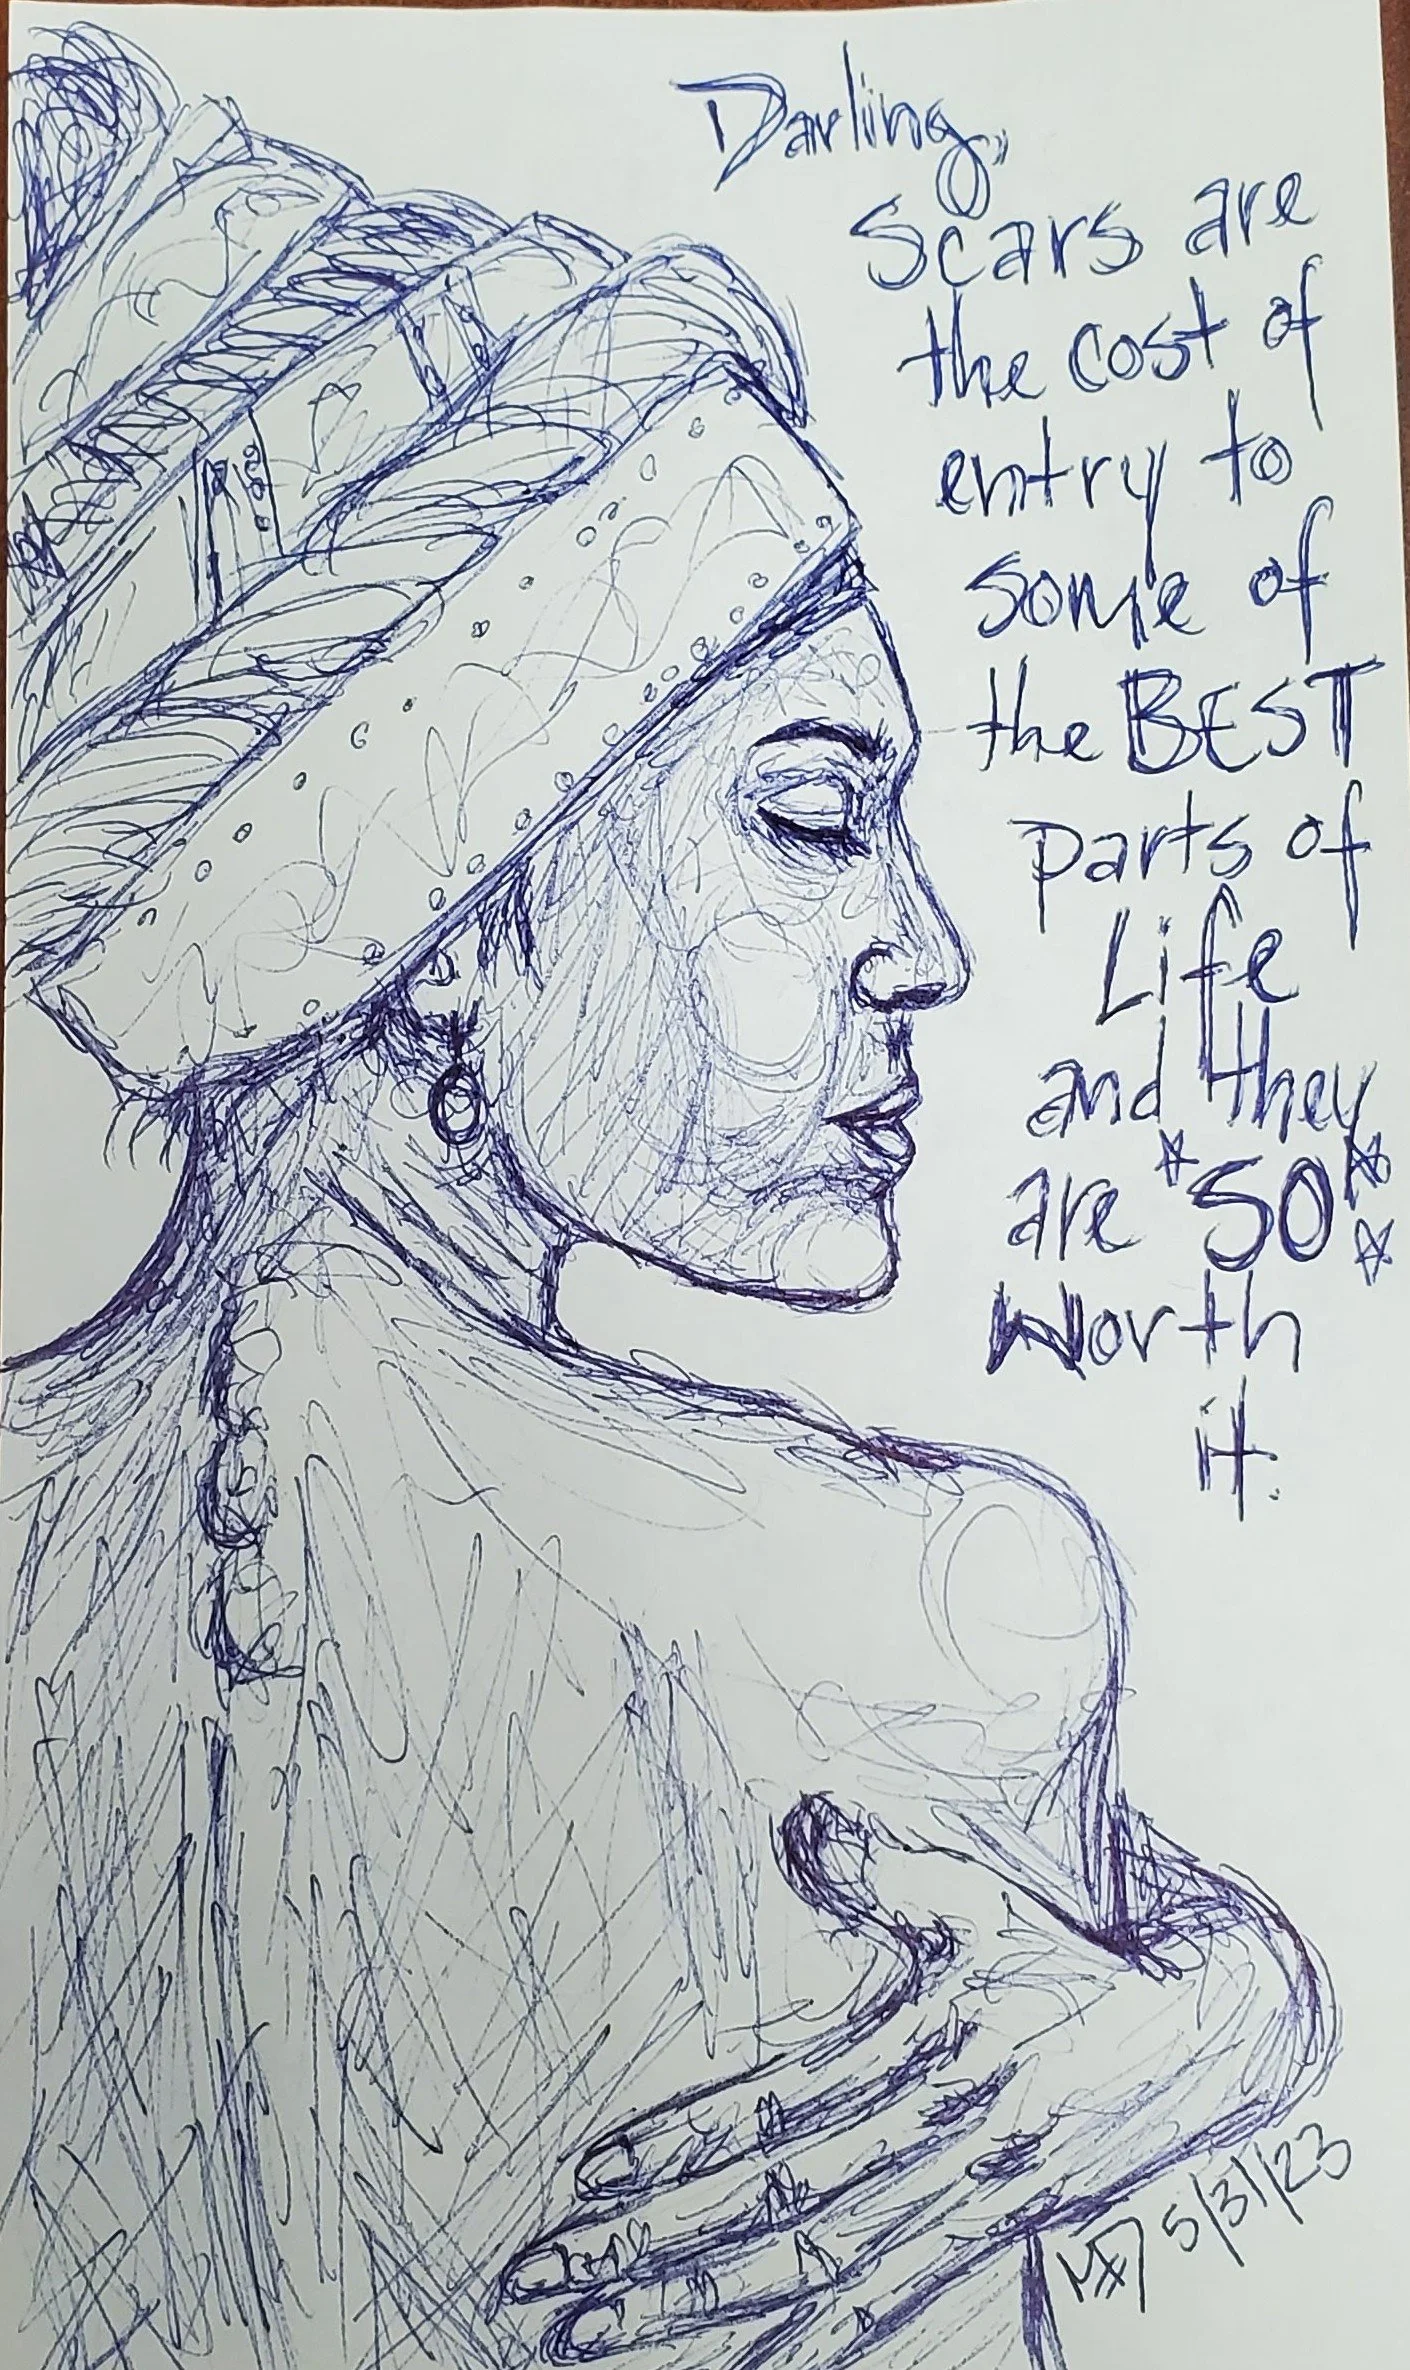 Darling,
scars are
the cost of
entry to
some of
the BEST
parts of
Life
and they
are *SO*
worth
it.
5/31/23